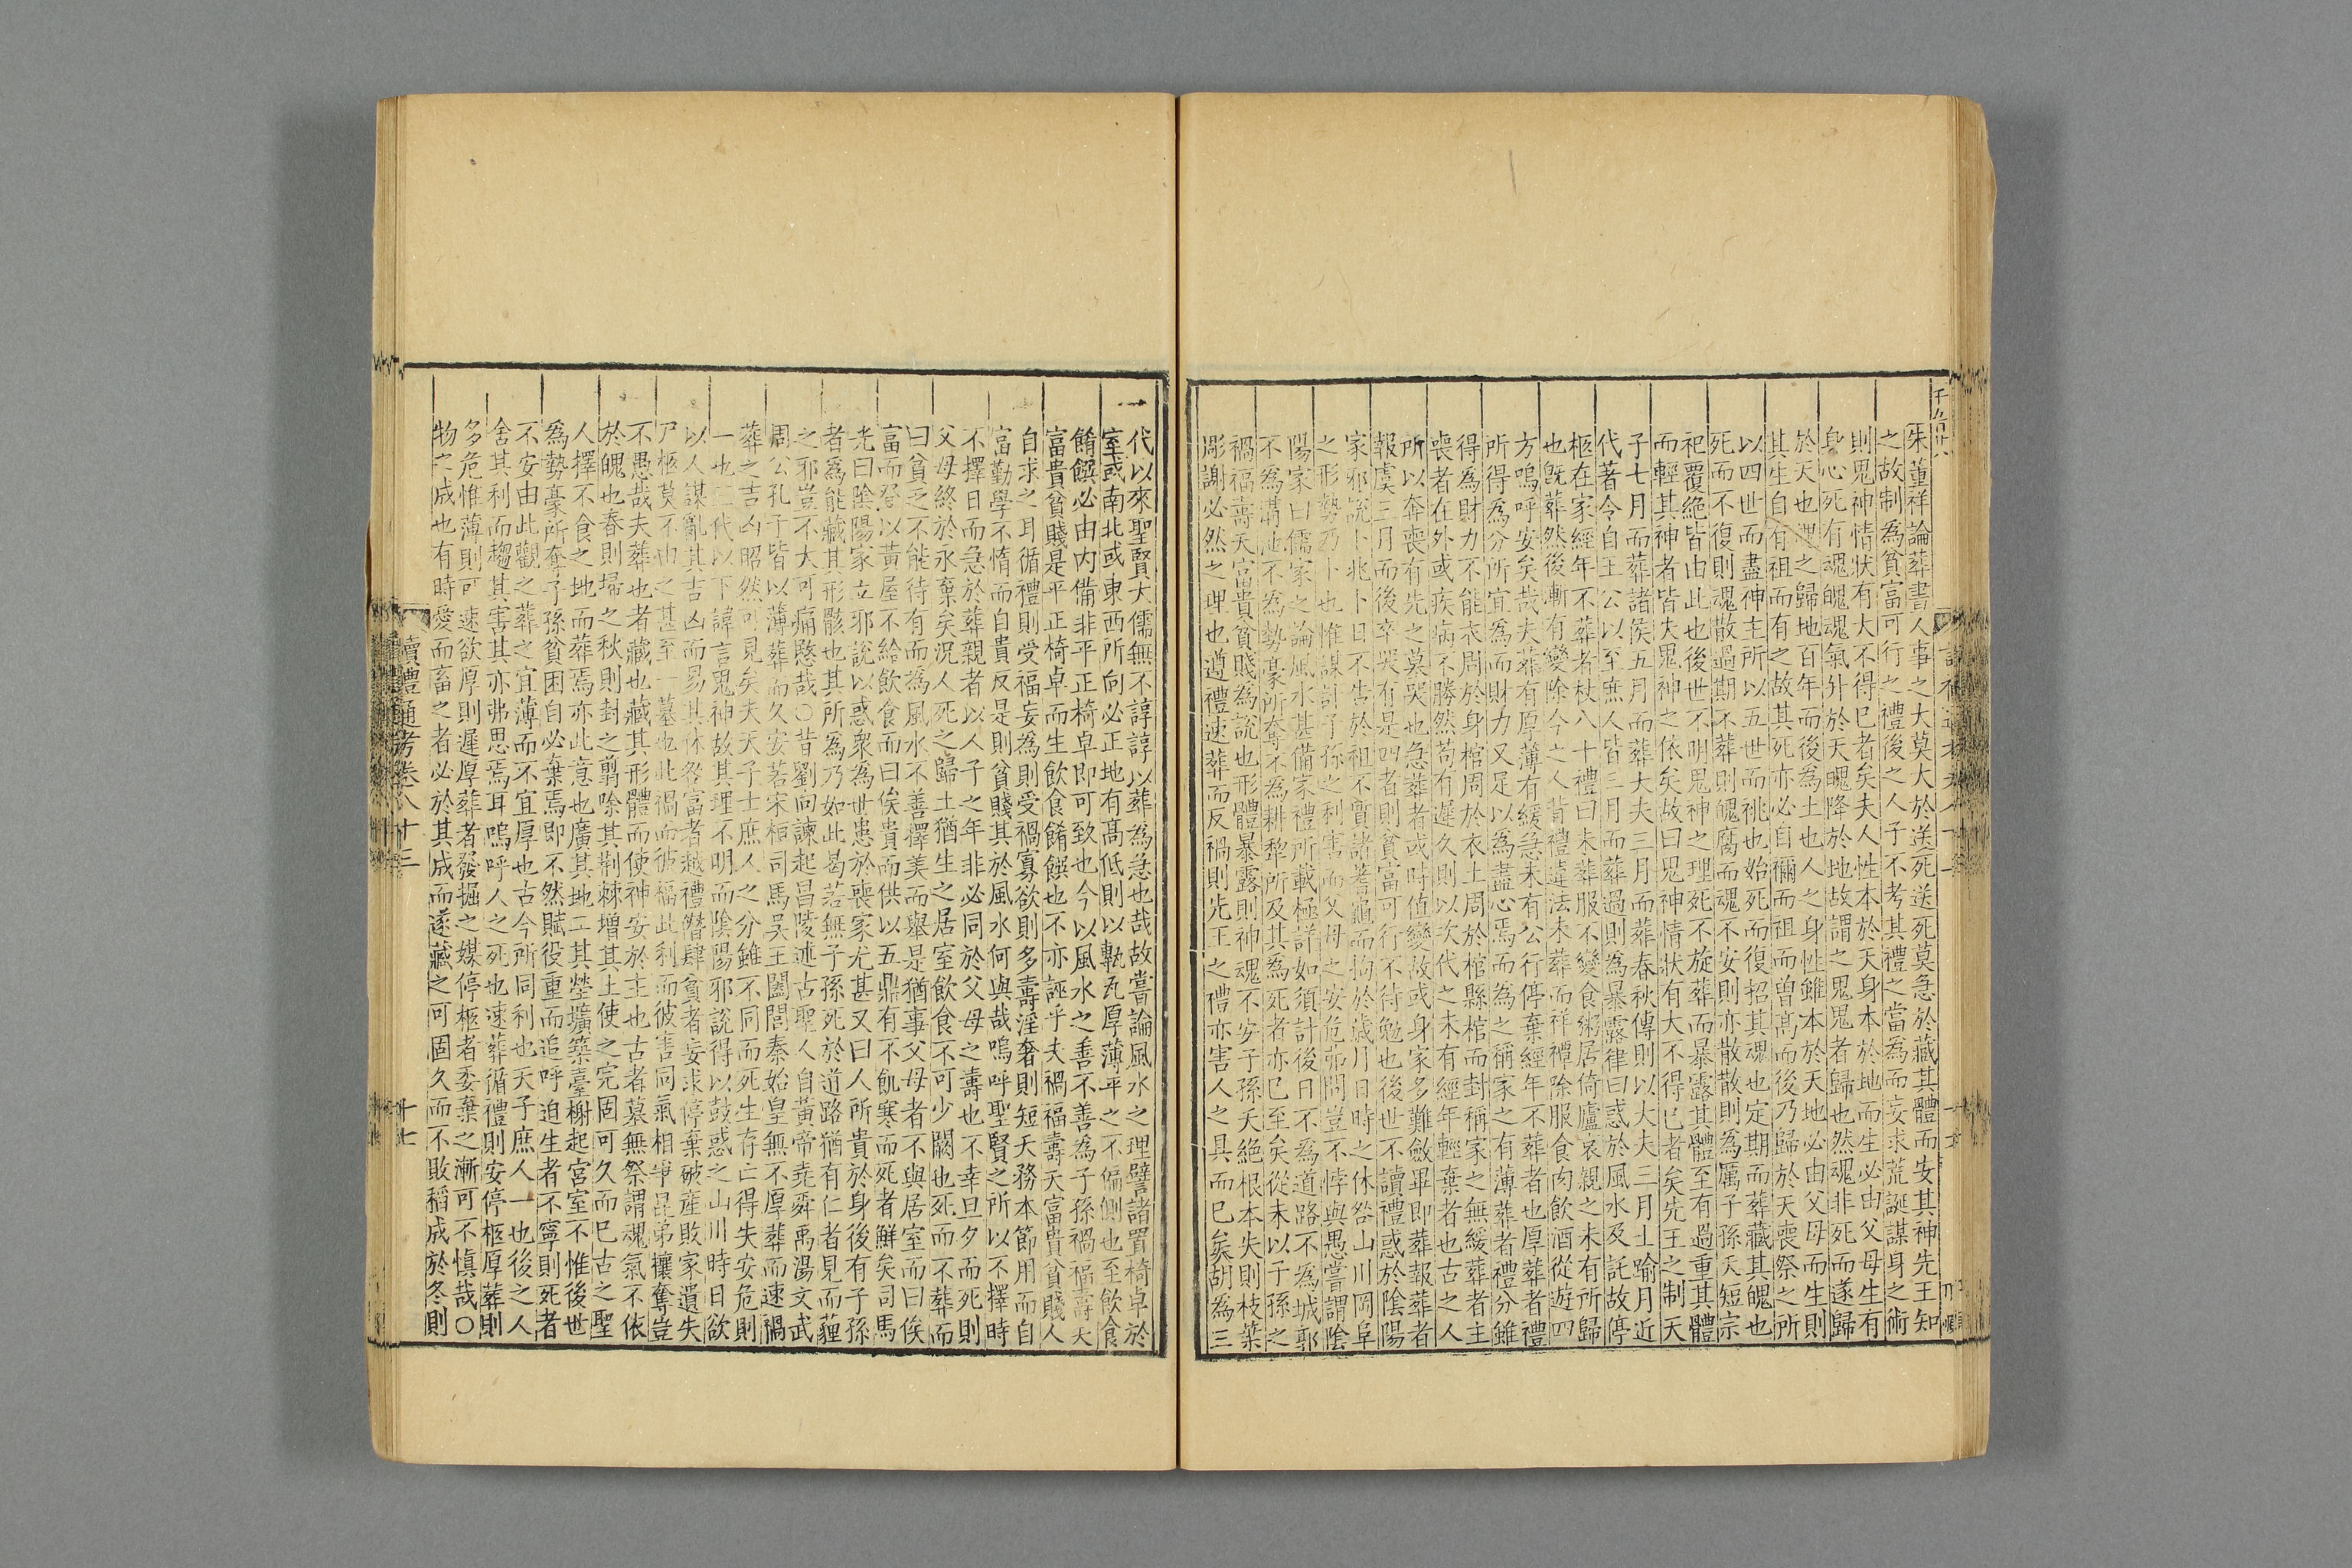 朱董祥論葬書人事之大莫大於送死送死莫急於藏其體而安其神先王知
之故制為貧富可行之禮後之人子不考其禮之當為而妄求荒誕謀身之術
則鬼神情狀有大不得已者矣夫人性本於天身本於地而生必由父母生有
身心死有魂魄魂氣升於天魄降於地故謂之鬼鬼者歸也然魂非死而遂歸
於天也魄之歸地百年而後為土也人之身性雖本於天地必由父母而生則
其生自有祖而有之故其死亦必自禰而祖而曾高而後乃歸於天喪祭之所
以四世而盡神主所以五世而祧也始死而復招其魂也定期而葬藏其魄也
死而不復則魂散過期不葬則魄腐而魂不安則亦散散則為厲子孫夭短宗
祀覆絕皆由此也後世不明鬼神之理死不旋葬而暴露其體至有過重其體
而輕其神者皆失鬼神之依矣故曰鬼神情狀有大不得已者矣先王之制天
子七月而葬諸侯五月而葬大夫三月而葬春秋傳則以大夫三月士踰月近
代著令自王公以至庶人皆三月而葬過則為暴露律曰惑於風水及託故停
柩在家經年不葬者杖八十禮曰未葬服不變食粥居倚廬哀親之未有所歸
也旣葬然後漸有變除今之人背禮違法未葬而祥禫除服食肉飲酒從遊四
方嗚呼安矣哉夫葬有厚薄有緩急未有公行停棄經年不葬者也厚葬者禮
所得為分所宜為而財力又足以為盡心焉而為之稱家之有薄葬者禮分雖
得為財力不能衣周於身棺周於衣土周於棺縣棺而封稱家之無緩葬者主
喪者在外或疾病不勝然苟有遲久則以次代之未有經年輕棄者也古之人
所以奔喪有先之墓哭也急葬者或時值變故或身家多難斂畢即葬報葬者
報虞三月而後卒哭有是四者則貧富可行不待勉也後世不讀禮惑於陰陽
家邪說卜兆卜日不告於祖不質諸蓍龜而拘於歲月日時之休咎山川岡阜
之形勢乃卜也惟謀計子孫之利害而父母之安危弗問豈不悖與愚嘗謂陰
陽家曰儒家之論風水甚備家禮所載極詳如須計後日不為道路不為城郭
不為溝池不為勢豪所奪不為耕犂所及其為死者亦已至矣從未以子孫之
禍福壽夭富貴貧賤為說也形體暴露則神魂不安子孫夭絕根本失則枝葉
彫謝必然之理也遵禮速葬而反禍則先王之禮亦害人之具而已矣胡為三
代以來聖賢大儒無不諄諄以葬為急也哉故嘗論風水之理譬諸置椅卓於
一室或南北或東西所向必正地有高低則以甎瓦厚薄平之不偏側也至飲食
餚饌必由內備非平正椅卓即可致也今以風水之善不善為子孫禍福壽夭
富貴貧賤是平正椅卓而生飲食餚饌也不亦誣乎夫禍福壽夭富貴貧賤人
自求之耳循禮則受福妄為則受禍寡欲則多壽淫奢則短夭務本節用而自
富勤學不惰而自貴反是則貧賤其於風水何與哉嗚呼聖賢之所以不擇時
不擇日而急於葬親者以人子之年非必同於父母之壽也不幸旦夕而死則
父母終於永棄矣況人死之歸土猶生之居室飲食不可少闕也死而不葬而
曰貧乏不能待有而為風水不善擇美而舉是猶事父母者不與居室而曰俟
富而登以黃屋不給飲食而曰俟貴而供以五鼎有不飢寒而死者鮮矣司馬
光曰陰陽家立邪說以惑衆為世患於喪家尤甚又曰人所貴於身後有子孫
者為能藏其形骸也其所為乃如此曷若無子孫死於道路猶有仁者見而薶
之邪豈不大可痛愍哉○昔劉向諫起昌陵述古聖人自黃帝堯舜禹湯文武
周公孔子皆以薄葬而久安若宋桓司馬吳王闔閭秦始皇無不厚葬而速禍
葬之吉凶昭然可見矣夫天子士庶人之分雖不同而死生存亡得失安危則
一也三代以下諱言鬼神故其理不明而陰陽邪說得以鼓惑之山川時日欲
以人謀亂其吉凶而易其休咎富者越禮僭肆貧者妄求停棄破產敗家遺失
尸柩莫不由之甚至一墓也此禍而彼福此利而彼害同氣相爭昆弟攘奪豈
不愚哉夫葬也者藏也藏其形體而使神安於主也古者墓無祭謂魂氣不依
於魄也春則埽之秋則封之翦除其荆棘增其土使之完固可久而已古之聖
人擇不食之地而葬焉亦此意也廣其地工其塋壙築臺榭起宮室不惟後世
為勢豪所奪子孫貧困自必棄焉即不然賦役重而追呼迫生者不寧則死者
不安由此觀之葬之宜薄而不宜厚也古今所同利也天子庶人一也後之人
舍其利而趨其害其亦弗思焉耳嗚呼人之死也速葬循禮則安停柩厚葬則
多危惟薄則可速欲厚則遲厚葬者發掘之媒停柩者委棄之漸可不慎哉○
物之成也有時愛而畜之者必於其成而遂藏之可固久而不敗稻成於冬則
讀禮通考卷八十三
十七